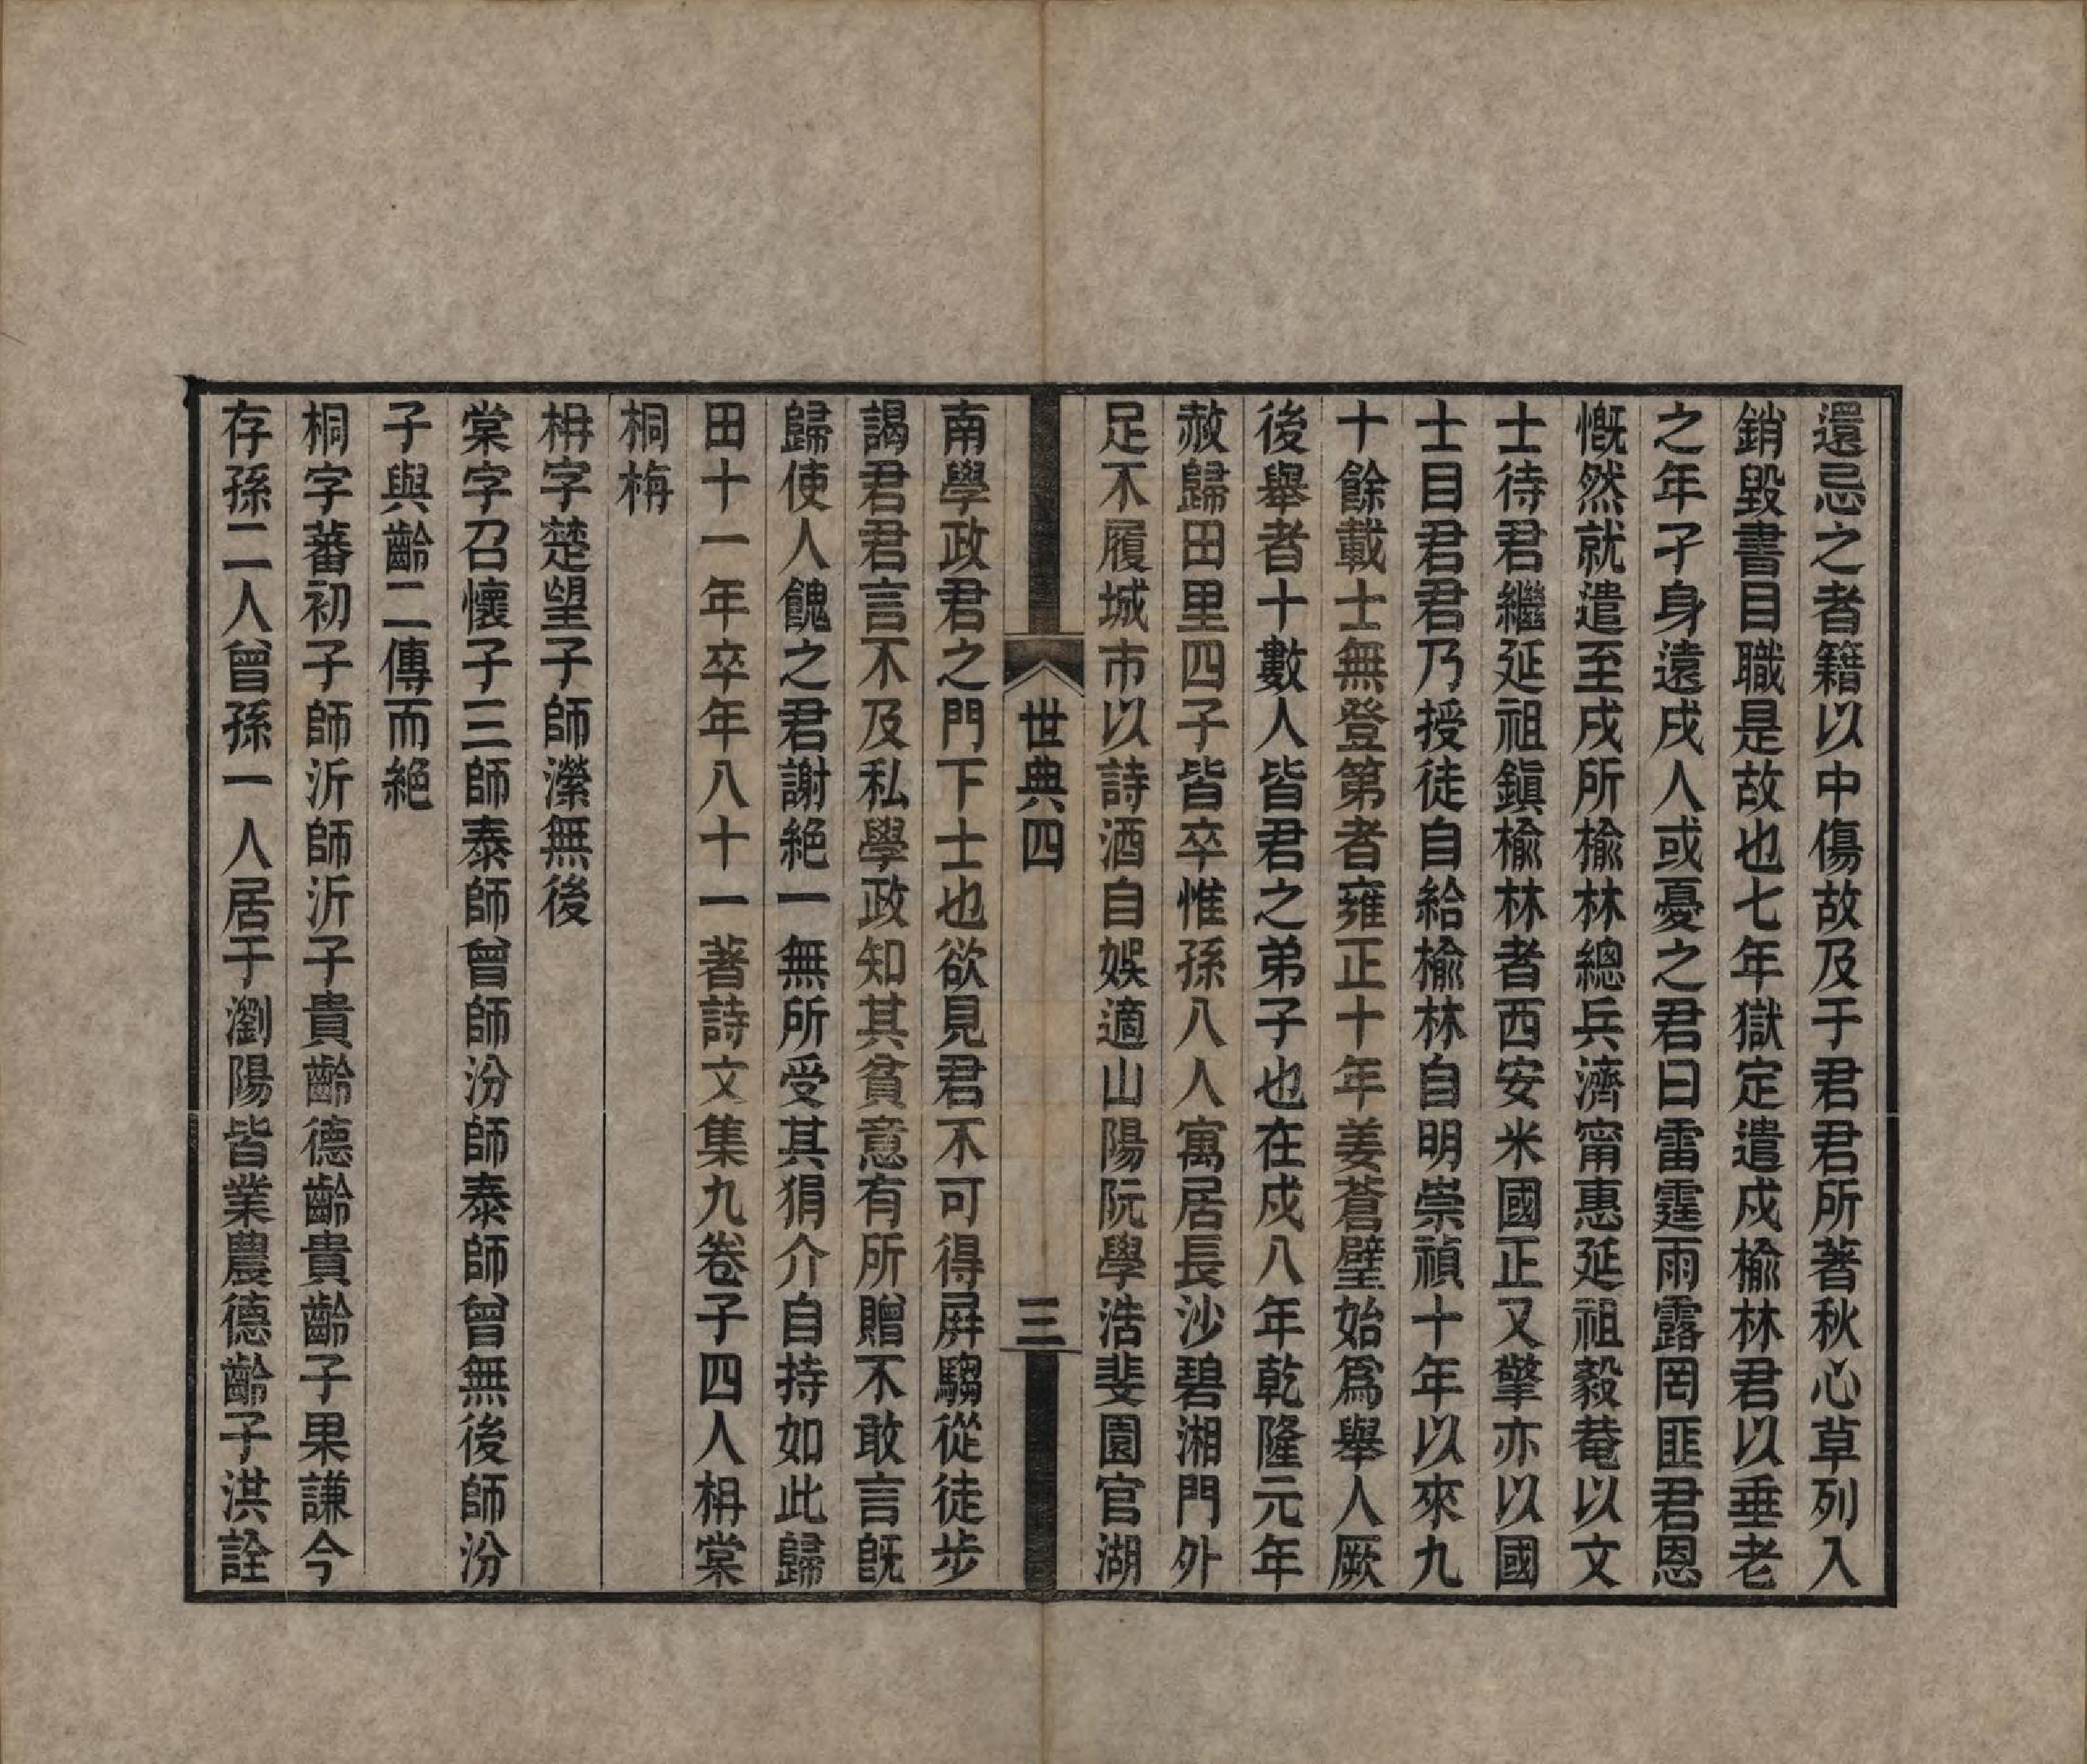 還忌之者籍以中傷故及于君君所著秋心草列入
銷毀書目職是故也七年獄定遣戍榆林君以垂老
之年孑身遠戍人或憂之君曰雷霆雨露罔匪君恩
慨然就遣至戍所榆林總兵濟甯惠延祖毅菴以文
士待君繼延祖鎭榆林者西安米國正又擎亦以國
士目君君乃授徒自給榆林自明崇禎十年以來九
十餘載士無登第者雍正十年姜蒼璧始爲舉人厥
後舉者十數人皆君之弟子也在戍八年乾隆元年
赦歸田里四子皆卒惟孫八人寓居長沙碧湘門外
足不履城市以詩酒自娛適山陽阮學浩斐園官湖
世典四
三
南學政君之門下士也欲見君不可得屛騶從徒步
謁君君言不及私學政知其貧意有所贈不敢言旣
歸使人餽之君謝絕一無所受其狷介自持如此歸
田十一年卒年八十一著詩文集九卷子四人枏棠
桐栴
枏字楚望子師濴無後
棠字召懷子三師泰師曾師汾師泰師曾無後師汾
子與齡二傳而絕
桐字蕃初子師沂師沂子貴齡德齡貴齡子果謙今
存孫二人曾孫一人居于瀏陽皆業農德齡子洪詮